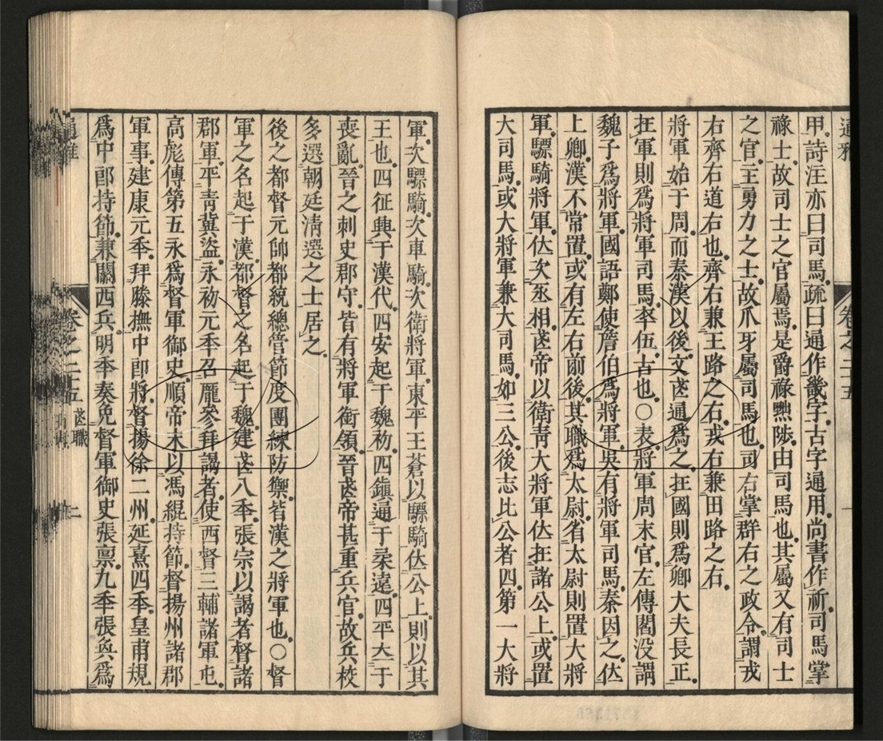 甲詩注亦曰司馬疏曰通作畿字古字通用尚書作祈司馬掌
祿士故司士之官屬焉是爵祿黜陟由司馬也其屬又有司士
之官主勇力之士故爪牙屬司馬也司右掌群右之政令謂戎
右齊右道右也齊右兼王路之右戎右兼田路之右
將軍始于周而秦漢以後文武通爲之在國則爲卿大夫長正
在軍則爲將軍司馬卒伍古也〇表將軍周末官左傳閻没謂
魏子爲將軍國語鄭使詹伯爲將軍吳有將軍司馬秦因之位
上卿漢不常置或有左右前後其職爲太尉省太尉則置大將
軍驃騎將軍位次丞相武帝以衛青大將軍位在諸公上或置
大司馬或大將軍兼大司馬如三公後志比公者四第一大將
軍次驃騎次車騎次衛將軍東平王蒼以驃騎位公上則以其
王也四征興于漢代四安起于魏初四鎮通于柔遠四平大于
喪亂晉之刺史郡守皆有將軍銜領晉武帝甚重兵官故兵校
多選朝廷清選之士居之
後之都督元帥都統總管節度團練防禦皆漢之將軍也〇督
軍之名起于漢都督之名起于魏建武八秊張宗以謁者督諸
郡軍平青冀盜永初元秊召龐參拜謁者使西督三輔諸軍屯
高彪傳第五永爲督軍御史順帝末以馮緄持節督揚州諸郡
軍事建康元秊拜滕撫中郎將督揚徐二州延熹四秊皇甫規
爲中郎持節兼關西兵明秊奏免督軍御史張禀九秊張奐爲
通雅
卷之二十五
武職
二